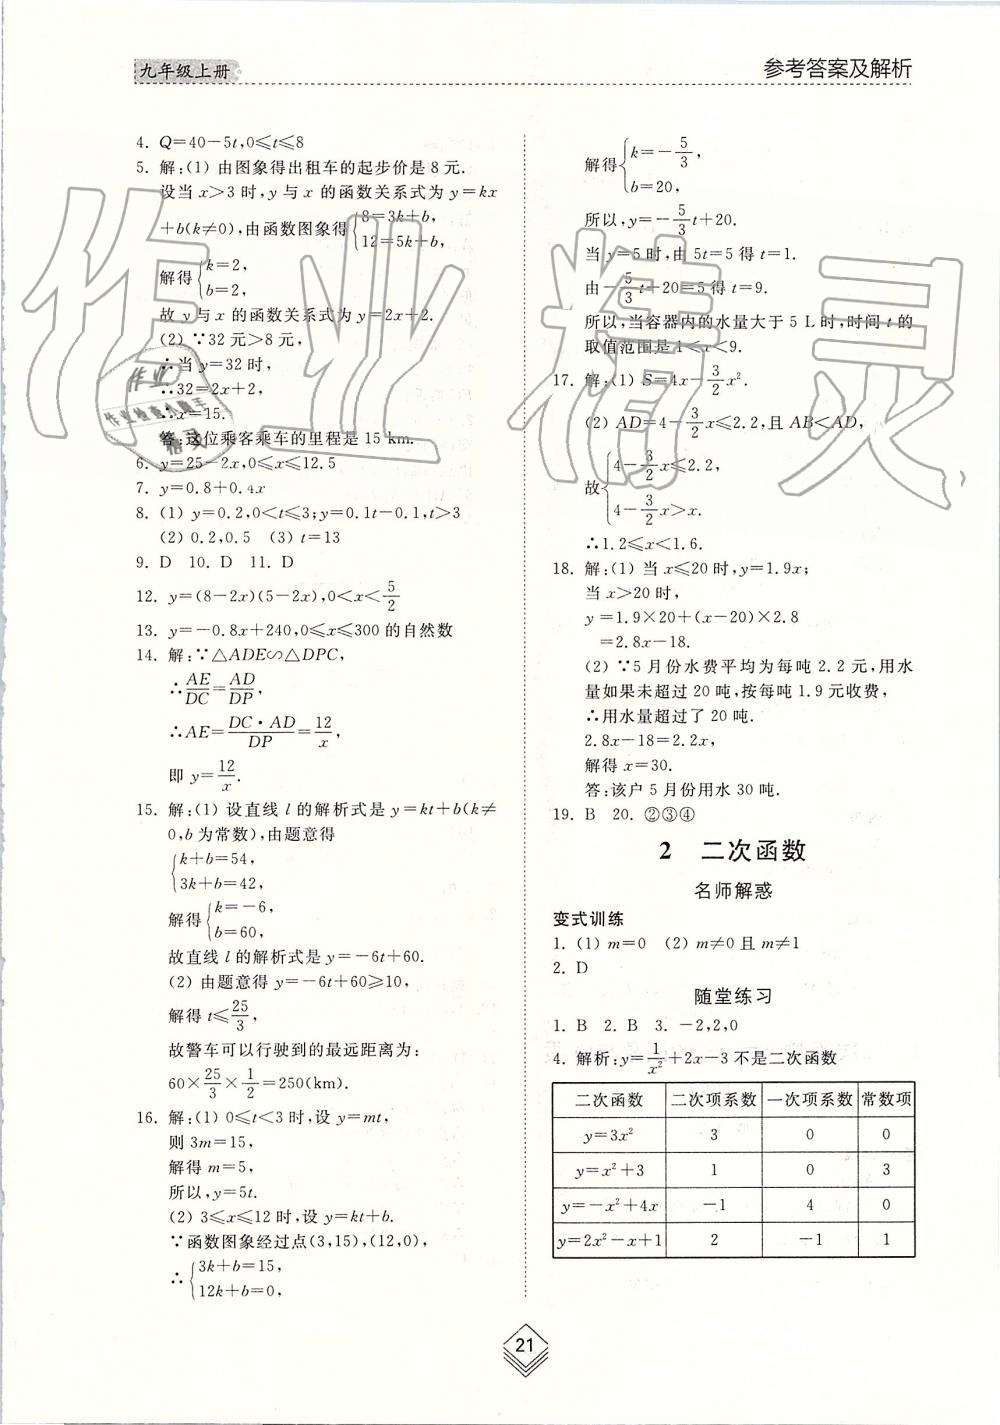 九年级上册
参考答案及解析
4. Q=40-5t,0≤t≤8
5. 解:(1) 由图象得出租车的起步价是 8 元.
设当 x>3 时,y 与 x 的函数关系式为 y=kx
+b(k≠0),由函数图象得{8=3k+b,
12=5k+b,
解得{k=2,
b=2,
故 y 与 x 的函数关系式为 y=2x+2.
(2) ∵32 元>8 元,
∴当 y=32 时,
∴32=2x+2,
∴x=15.
答:这位乘客乘车的里程是 15 km.
6. y=25-2x,0≤x≤12.5
7. y=0.8+0.4x
8. (1) y=0.2,0<t≤3;y=0.1t-0.1,t>3
(2) 0.2,0.5 (3) t=13
9. D 10. D 11. D
12. y=(8-2x)(5-2x),0<x<5/2
13. y=-0.8x+240,0≤x≤300 的自然数
14. 解:∵△ADE∽△DPC,
∴AE/DC=AD/DP,
∴AE=DC·AD/DP=12/x,
即 y=12/x.
15. 解:(1) 设直线 l 的解析式是 y=kt+b(k≠
0,b 为常数),由题意得
{k+b=54,
3k+b=42,
解得{k=-6,
b=60,
故直线 l 的解析式是 y=-6t+60.
(2) 由题意得 y=-6t+60≥10,
解得 t≤25/3,
故警车可以行驶到的最远距离为:
60×25/3×1/2=250(km).
16. 解:(1) 0≤t<3 时,设 y=mt,
则 3m=15,
解得 m=5,
所以,y=5t.
(2) 3≤x≤12 时,设 y=kt+b.
∵函数图象经过点(3,15),(12,0),
∴{3k+b=15,
12k+b=0,
解得{k=-5/3,
b=20,
所以,y=-5/3t+20.
当 y=5 时,由 5t=5 得 t=1.
由-5/3t+20=5 得 t=9.
所以,当容器内的水量大于 5 L 时,时间 t 的
取值范围是 1<t<9.
17. 解:(1) S=4x-3/2x².
(2) AD=4-3/2x≤2.2,且 AB<AD,
故{4-3/2x≤2.2,
4-3/2x>x.
∴1.2≤x<1.6.
18. 解:(1) 当 x≤20 时,y=1.9x;
当 x>20 时,
y=1.9×20+(x-20)×2.8
=2.8x-18.
(2) ∵5 月份水费平均为每吨 2.2 元,用水
量如果未超过 20 吨,按每吨 1.9 元收费,
∴用水量超过了 20 吨.
2.8x-18=2.2x,
解得 x=30.
答:该户 5 月份用水 30 吨.
19. B 20. ②③④
2 二次函数
名师解惑
变式训练
1. (1) m=0 (2) m≠0 且 m≠1
2. D
随堂练习
1. B 2. B 3. -2,2,0
4. 解析:y=1/x²+2x-3 不是二次函数
二次函数 二次项系数 一次项系数 常数项
y=3x² 3 0 0
y=x²+3 1 0 3
y=-x²+4x -1 4 0
y=2x²-x+1 2 -1 1
21
作业精灵
作业
作业检查小助手
精灵